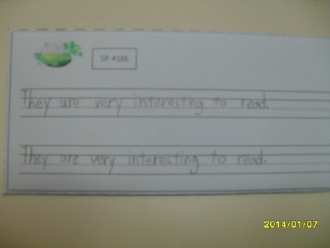 SP #286
They are very interesting to read.
They are very interesting to read.
2014/01/07